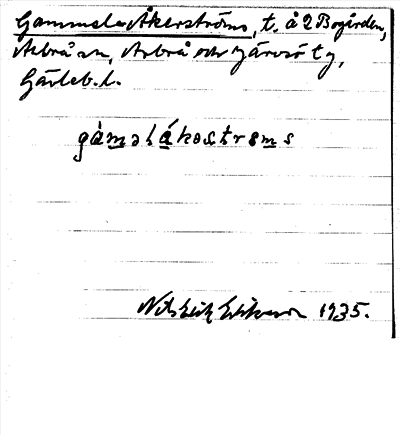 Gammel-Åkerströms, t. å 2 Bogården,
Arbrå sn, Arbrå och Järvsö tg,
Gävleb. l.
gàmǝlákǝstrǝms
1935.